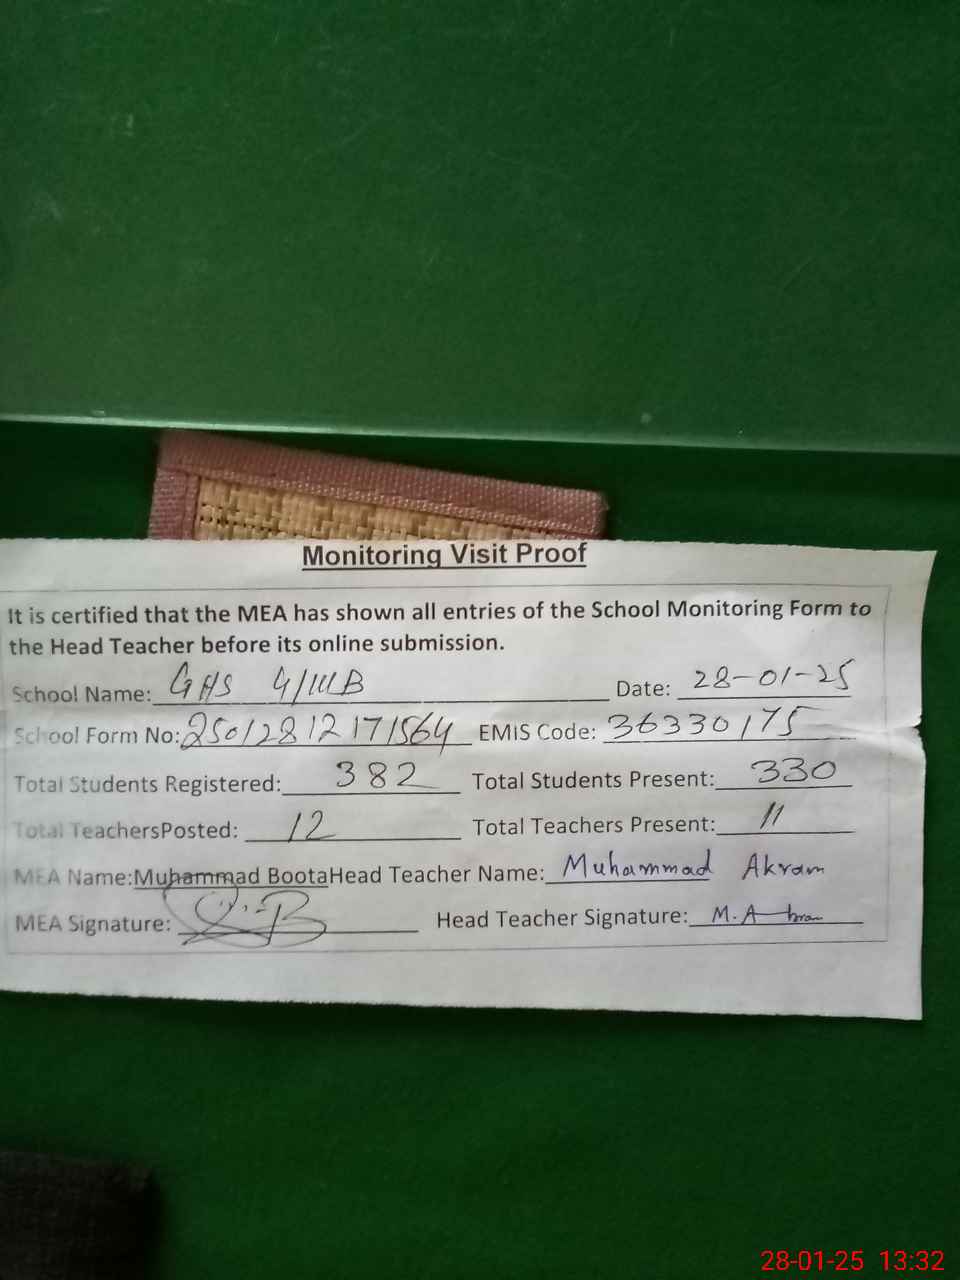 Monitoring Visit Proof
It is certified that the MEA has shown all entries of the School Monitoring Form to
the Head Teacher before its online submission.
School Name: GHS 4/WB Date: 28-01-25
School Form No: 25012812171564 EMIS Code: 36330175
Total Students Registered: 382 Total Students Present: 330
Total TeachersPosted: 12 Total Teachers Present: 11
MEA Name:Muhammad BootaHead Teacher Name: Muhammad Akram
MEA Signature: Head Teacher Signature: M. Akram
28-01-25 13:32